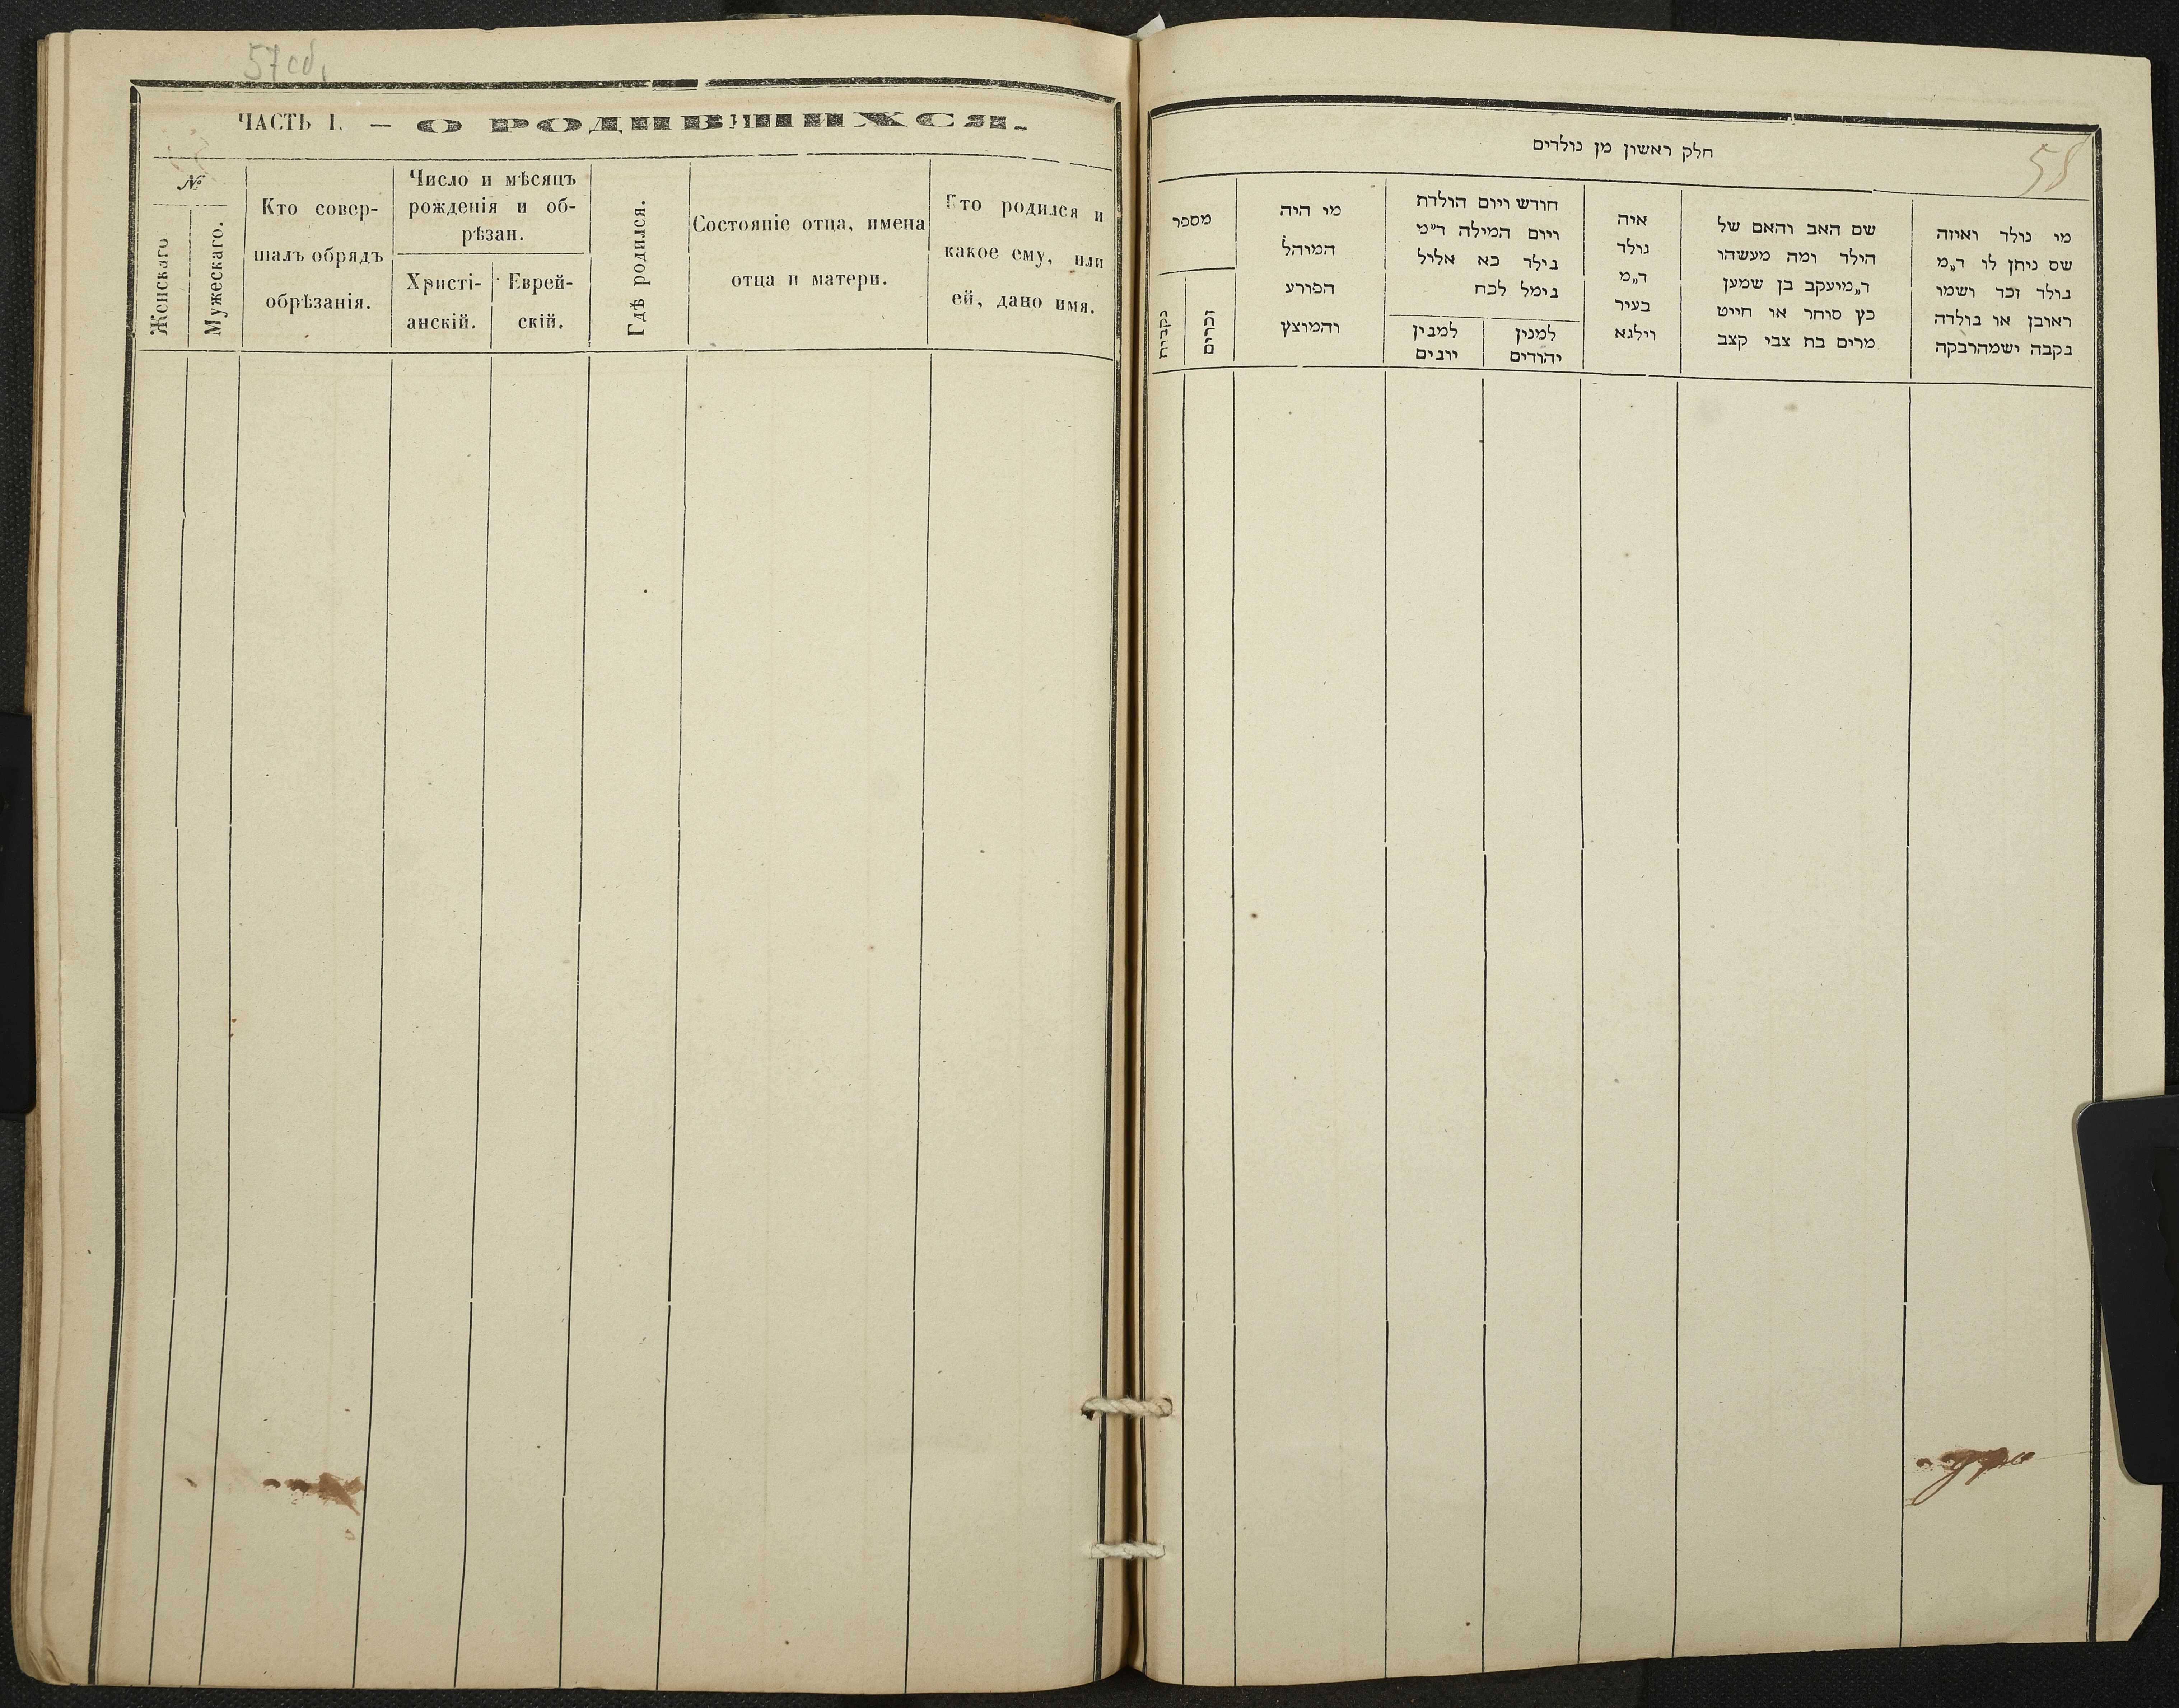 57 об.
ЧАСТЬ I. — О РОДИВШИХСЯ.
№
Женскаго
Мужескаго.
Кто совер-
шалъ обрядъ
обрѣзанія.
Число и мѣсяцъ
рожденія и об-
рѣзан.
Христі-
анскій.
Еврей-
скій.
Гдѣ родился.
Состояніе отца, имена
отца и матери.
Кто родился и
какое ему, или
ей, дано имя.
58
חלק ראשון מן נולדים
מי נולד ואיזה
שם ניתן לו ד„מ
נולד זכר ושמו
ראובן או נולדה
נקבה ישמהרבקה
שם האב והאם של
הילד ומה מעשהו
ד„מיעקב בן שמען
כץ סוחר או חייט
מרים בת צבי קצב
איה
נולד
ד„מ
בעיר
וילנא
חודש ויום הולדת
ויום המילה ד״מי
נילד כא אליל
נימל לכח
למנין
יהודים
למנין
יונים
מי היה
המוהל
הפורע
והמוצץ
מספר
זכרים
נקבית